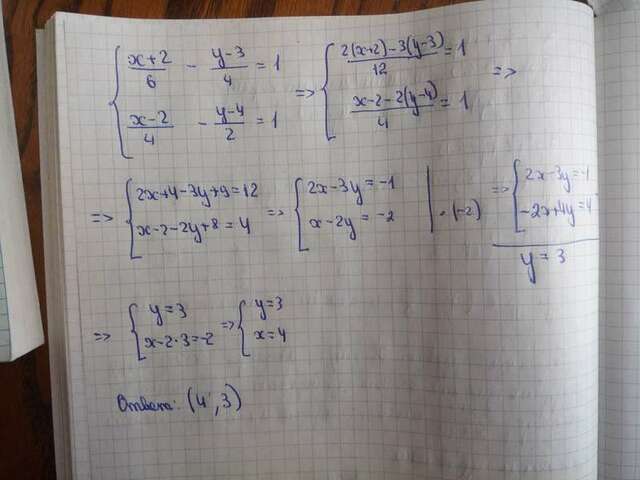 { (x+2)/6 - (y-3)/4 = 1 ; (x-2)/4 - (y-4)/2 = 1 => { (2(x+2)-3(y-3))/12 = 1 ; (x-2-2(y-4))/4 = 1 =>
=> { 2x+4-3y+9=12 ; x-2-2y+8=4 => { 2x-3y=-1 ; x-2y=-2 | ·(-2) => { 2x-3y=-1 ; -2x+4y=4
y=3
=> { y=3 ; x-2·3=-2 => { y=3 ; x=4
Ответ: (4,3)